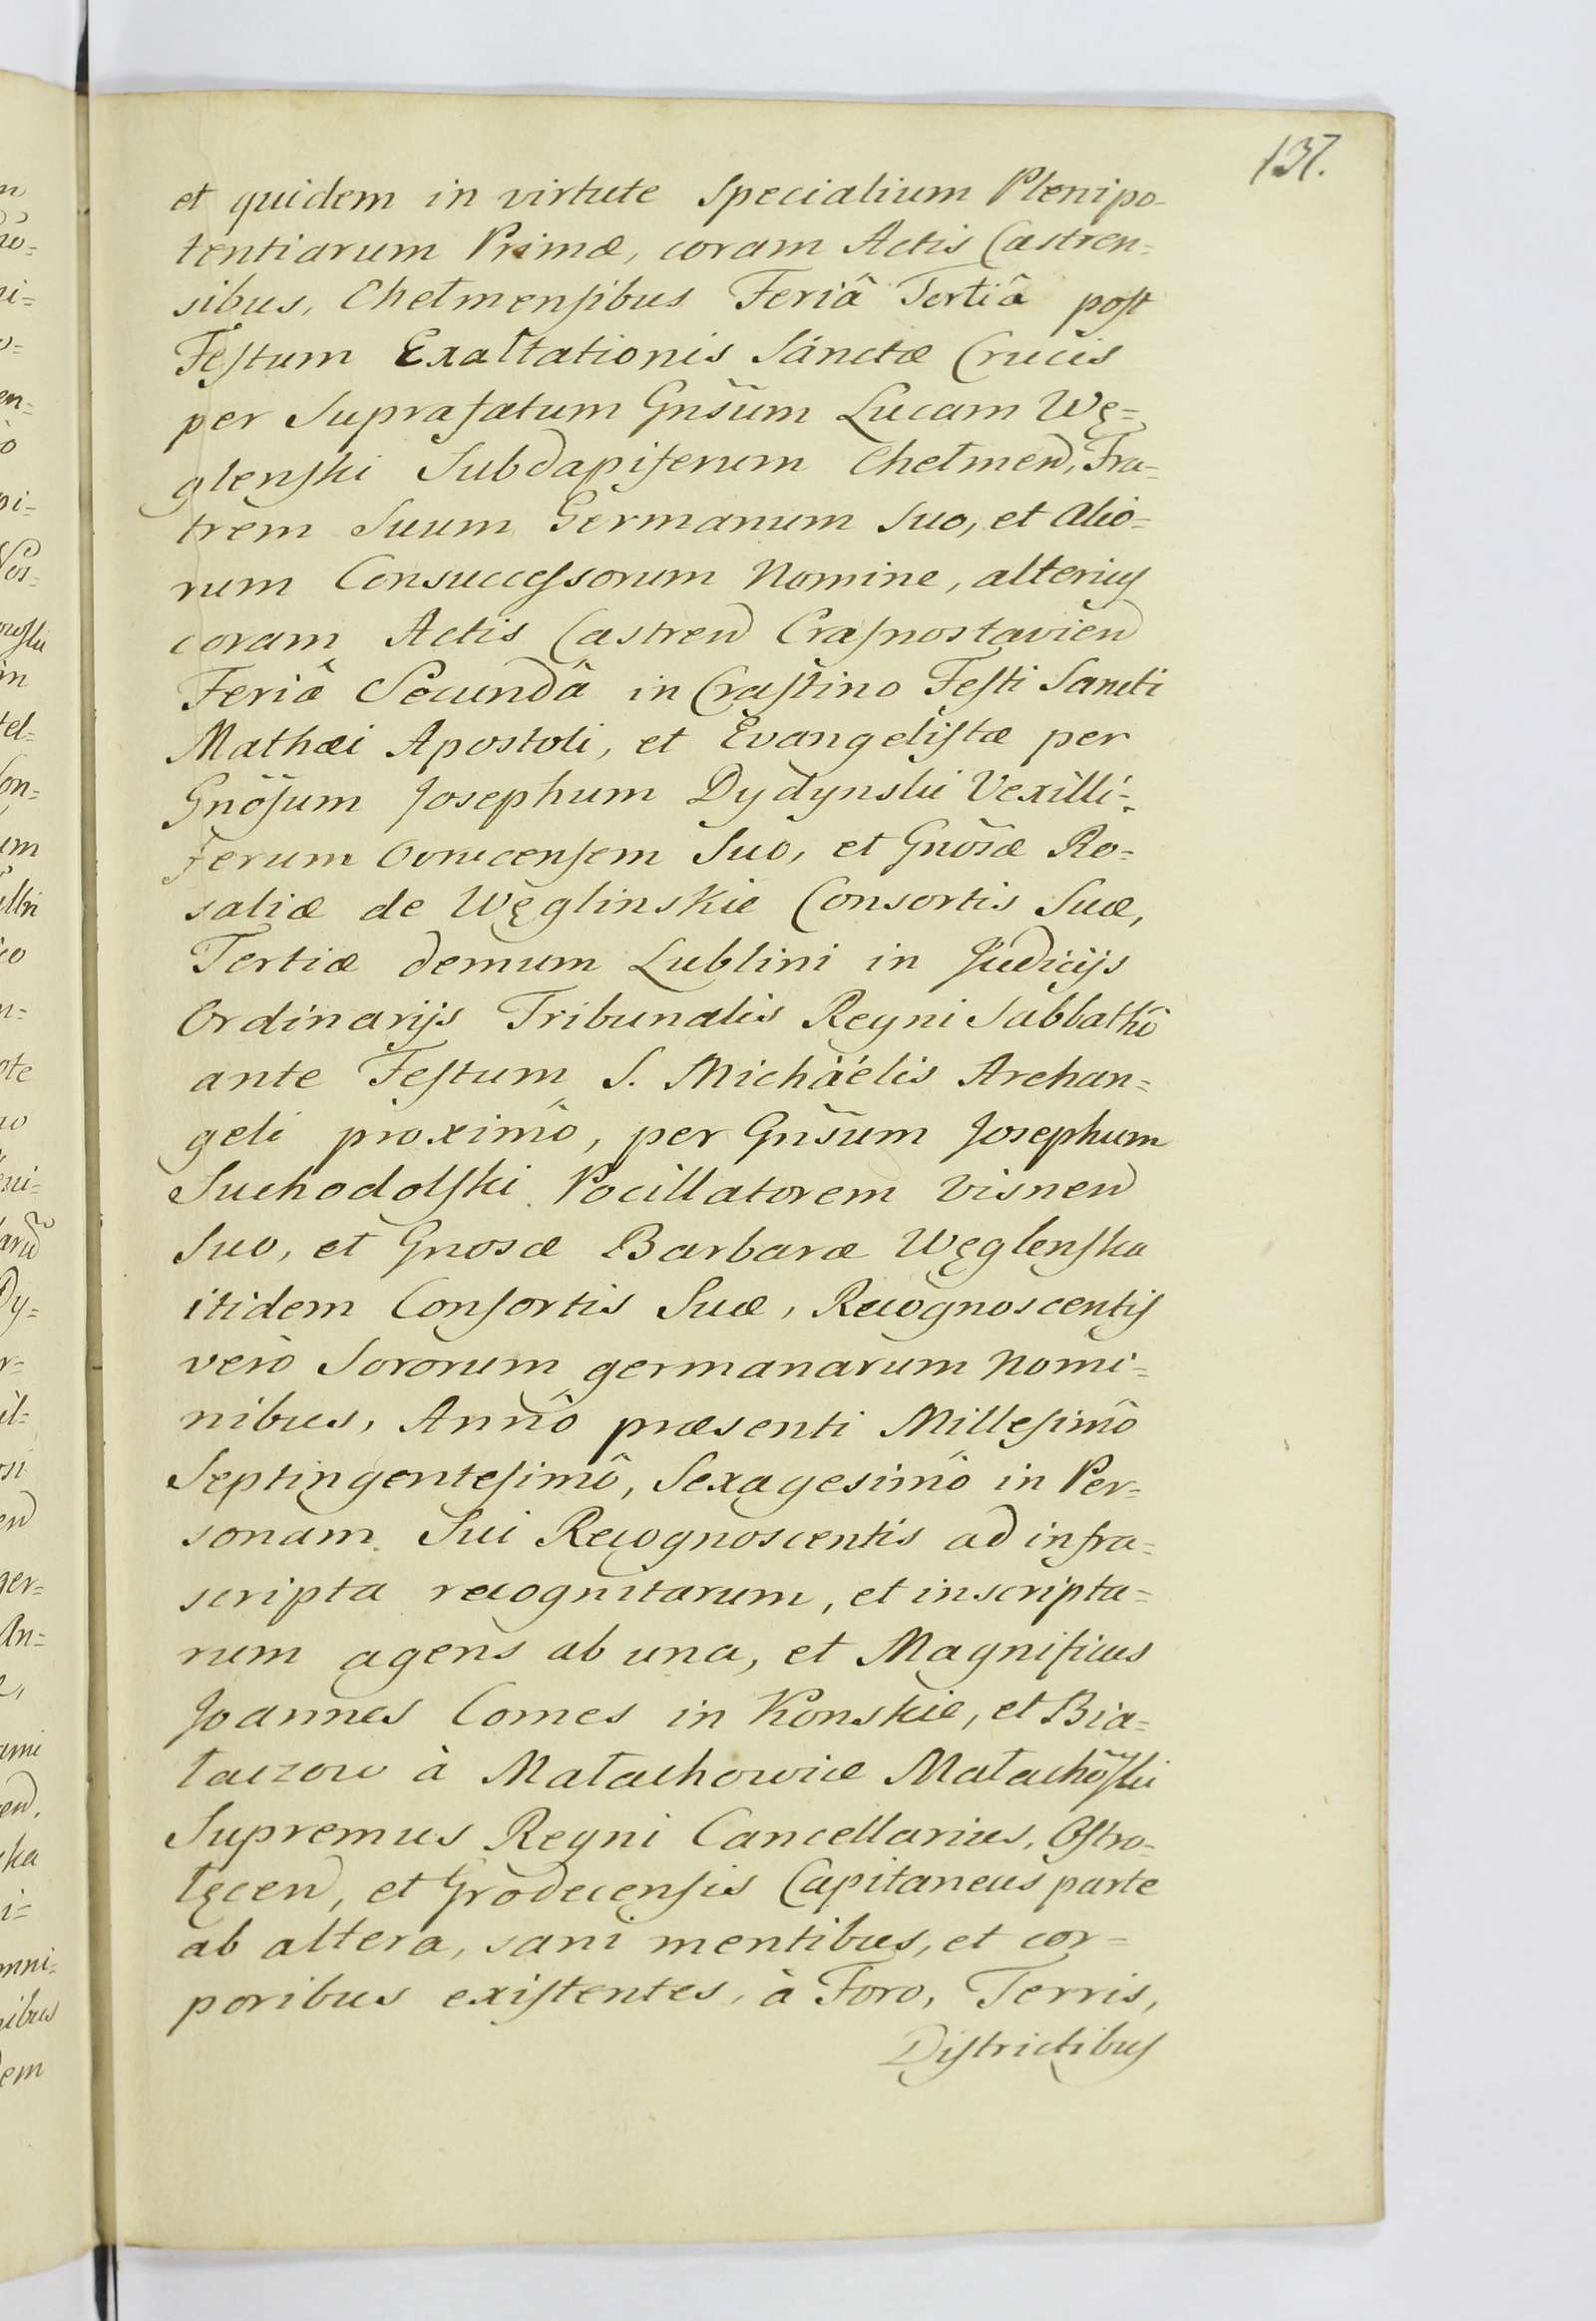 137.
et quidem in virtute Specialium Plenipo-
tentiarum Primæ, coram Actis Castren=
sibus, Chełmensibus Feriâ Tertiâ post
Festum Exaltationis Sánctæ Crucis
per Suprafatum Gnsum Lucam Wę=
glenski Subdapiferum Chełmen, Fra=
trem Suum Germanum Suo, et alio=
rum Consuccessorum Nomine, alterius
coram Actis Castren Crasnostavien
Feriâ Secundâ in Crastino Festi Sancti
Mathæi Apostoli, et Evangelistæ per
Gnosum Josephum Dydynski Vexilli=
ferum Ovrucensem Suo, et Gnosæ Ro=
saliæ de Węglinskie Consortis Suæ,
Tertiæ demum Lublini in Judicijs
Ordinarijs Tribunalis Regni Sabbathô
ante Festum S. Michaélis Archan=
geli proximô, per Gnsum Josephum
Suchodolski Pocillatorem Visnen
Suo, et Gnosæ Barbaræ Węglenska
itidem Consortis Suæ, Recognoscentis
verò Sororum germanarum nomi=
nibus, Annô præsenti Millesimô
Septingentesimô, Sexagesimô in Per=
sonam Sui Recognoscentis ad infra=
scripta recognitarum, et inscripta=
rum agens ab una, et Magnificus
Joannes Comes in Konskie, et Bia=
łaczow à Małachowice Małachoski
Supremus Regni Cancellarius, Ostro-
łęcen, et Grodecensis Capitaneus parte
ab altera, sani mentibus, et cor=
poribus existentes, à Foro, Terris,
Districtibus